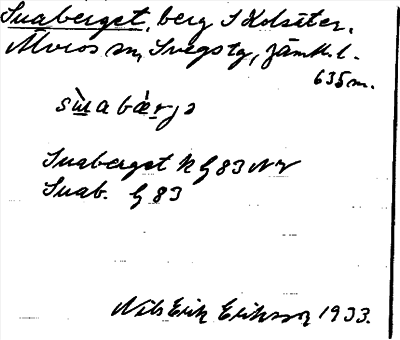 Suaberget, berg S Kolsäter.
Älvros sn, Svegs tg, Jämtl. l.
635 m.
Suaberget K G 83 NV
Suab. G 83
Nils Erik Eriksson 1933.